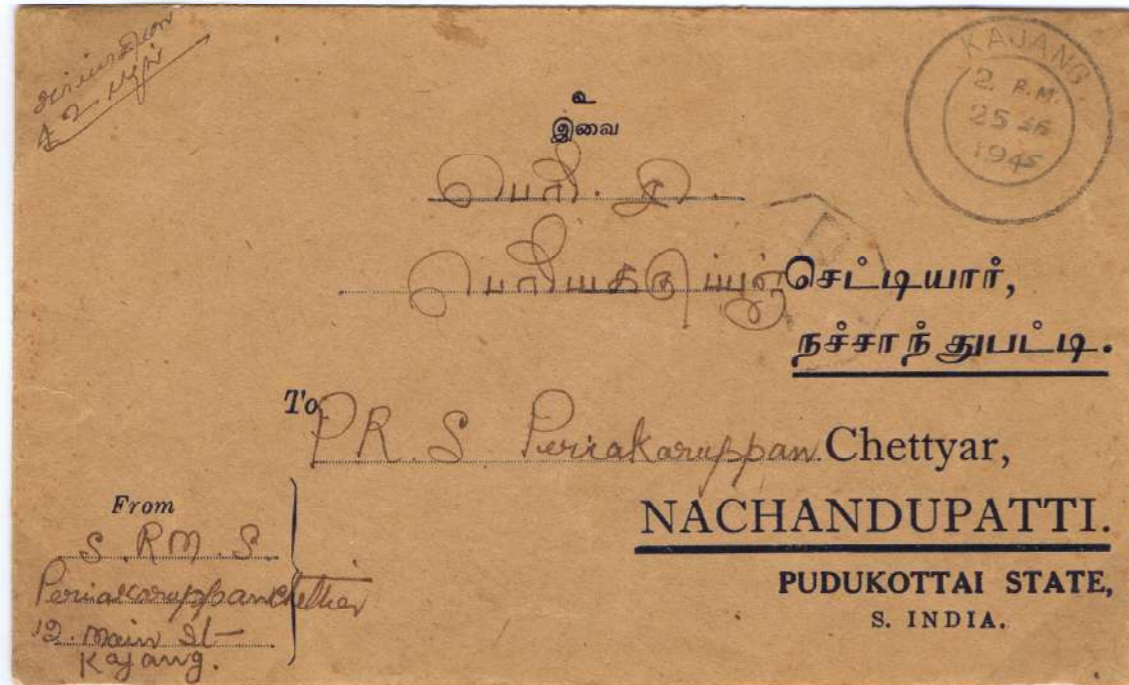 KAJANG
2 P.M.
25 SE
1945
உ
இவை
பெரி. சி.
பெரியகருப்பஞ் செட்டியார்,
நச்சாந்துபட்டி.
To P R. S Periakaruppan Chettyar,
NACHANDUPATTI.
PUDUKOTTAI STATE,
S. INDIA.
From
S. RM. S.
Periakaruppan Chettier
12. Main St-
Kajang.